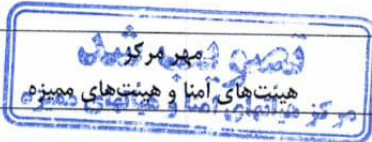 مهر مرکز
هیئت‌های امنا و هیئت‌های ممیزه
مرکز هیأتهای امنا و هیأتهای ممیزه